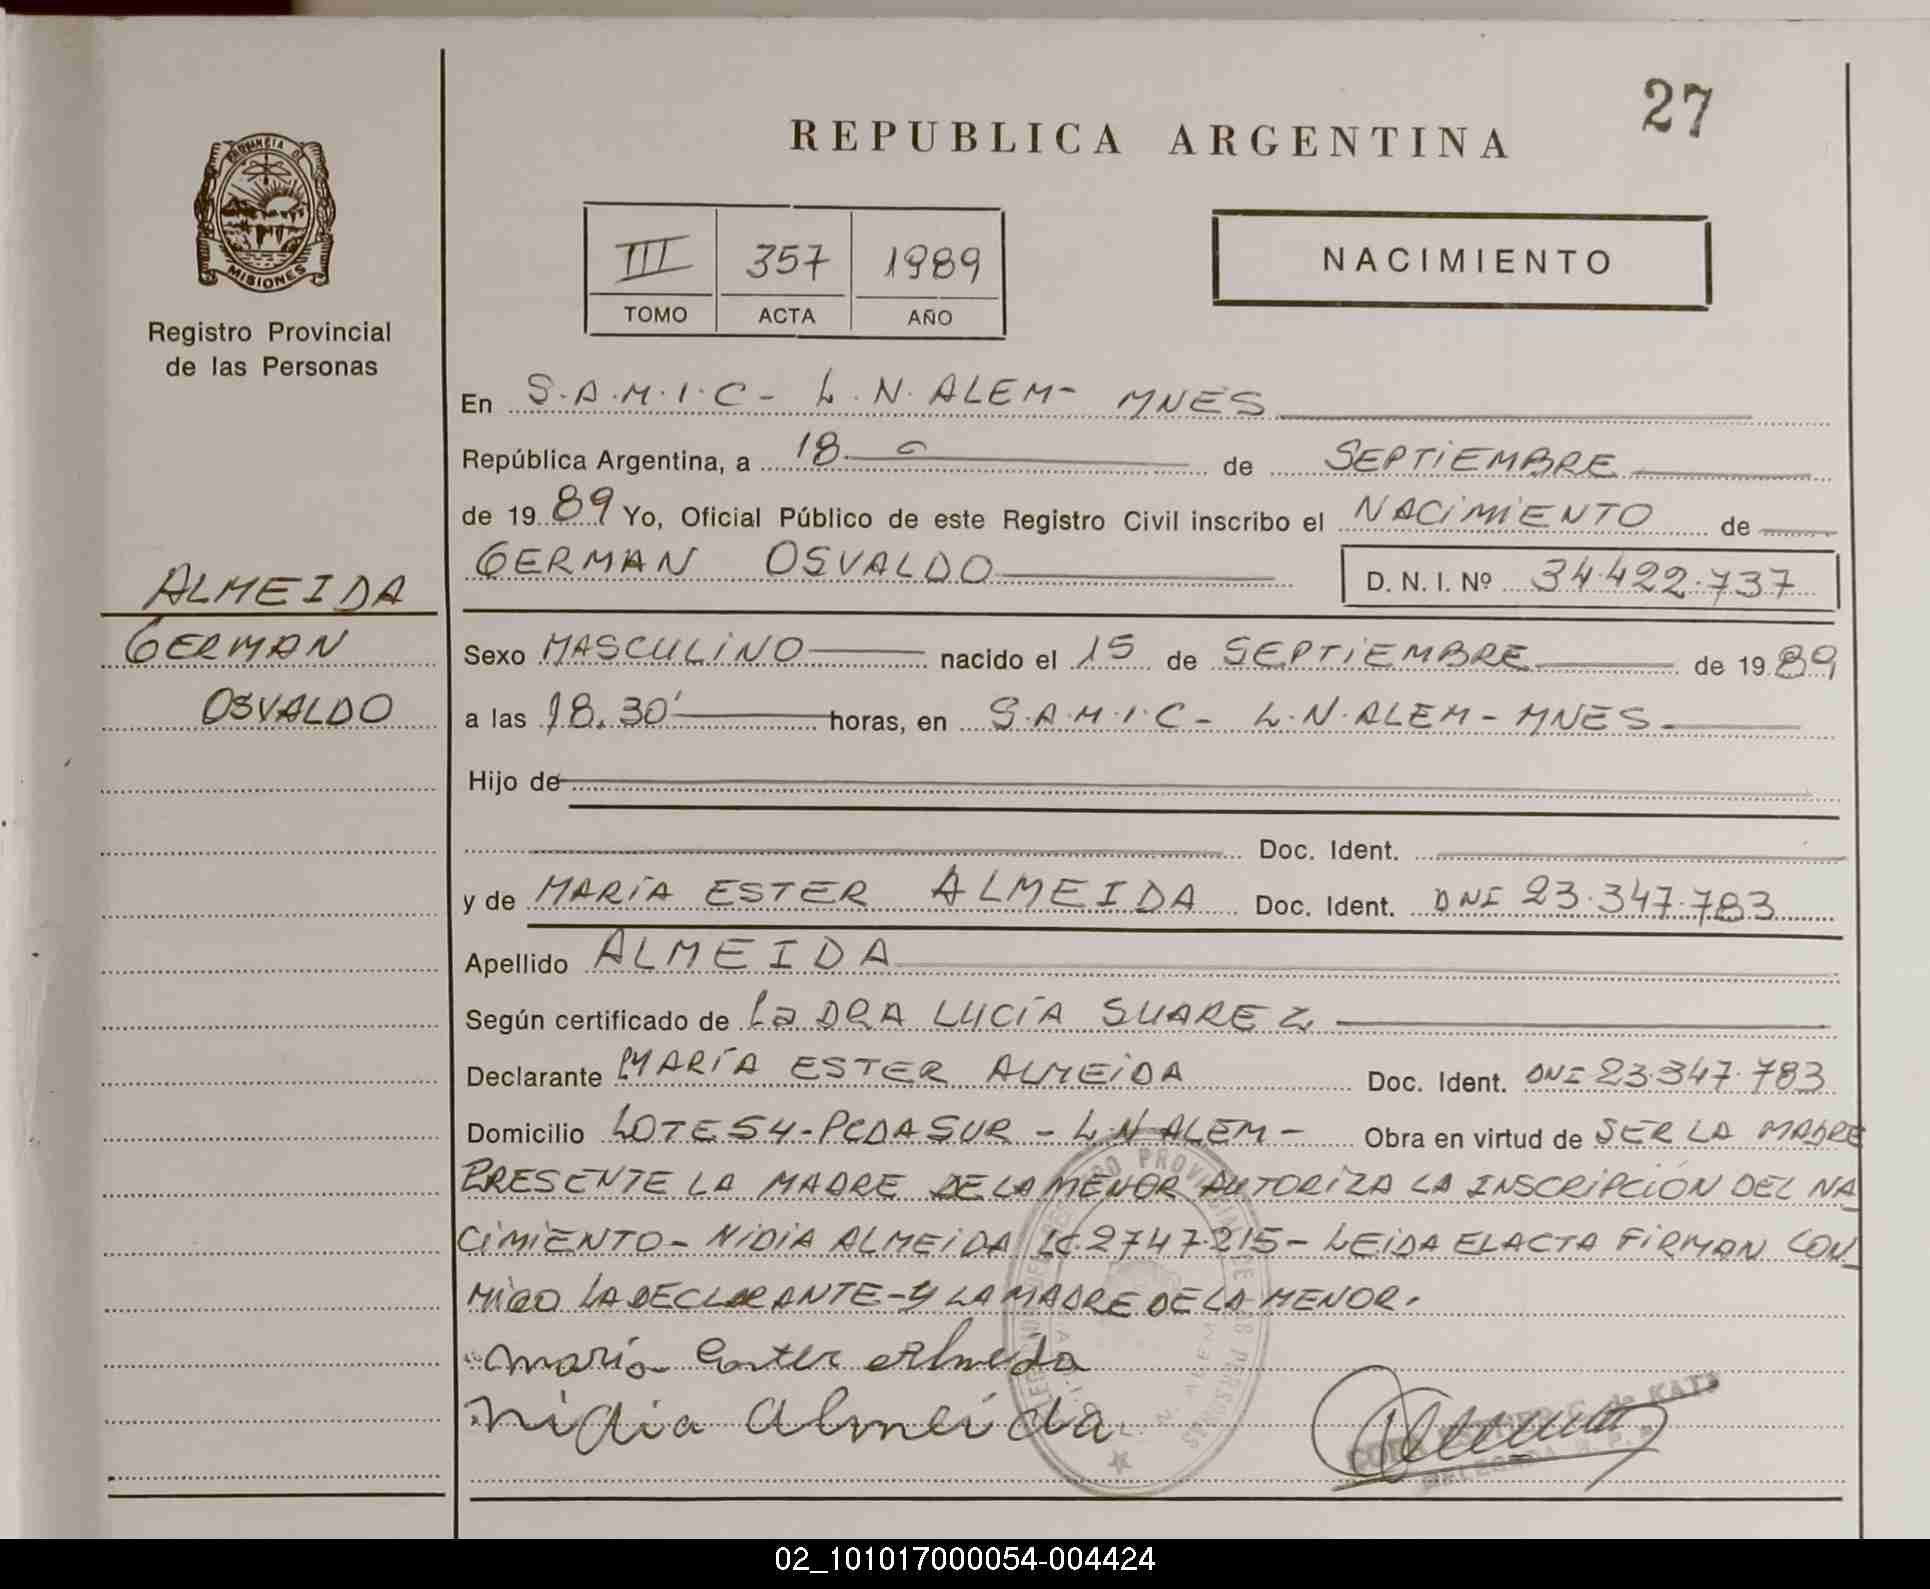 27
REPUBLICA ARGENTINA
PROVINCIA DE
MISIONES
Registro Provincial
de las Personas
III 357 1989
TOMO ACTA AÑO
NACIMIENTO
En S.A.M.I.C - L.N.ALEM - MNES
República Argentina, a 18 de SEPTIEMBRE
de 1989 Yo, Oficial Público de este Registro Civil inscribo el NACIMIENTO de
GERMAN OSVALDO D. N. I. Nº 34.422.737
ALMEIDA
GERMAN
OSVALDO
Sexo MASCULINO nacido el 15 de SEPTIEMBRE de 1989
a las 18.30' horas, en S.A.M.I.C - L.N.ALEM - MNES -
Hijo de
Doc. Ident.
y de MARÍA ESTER ALMEIDA Doc. Ident. DNI 23.347.783
Apellido ALMEIDA
Según certificado de La DRA LUCÍA SUAREZ
Declarante MARÍA ESTER ALMEIDA Doc. Ident. DNI 23.347.783
Domicilio LOTE 54 - PCDA SUR - L.N ALEM - Obra en virtud de SER LA MADRE
PRESENTE LA MADRE DE LA MENOR AUTORIZA LA INSCRIPCIÓN DEL NA
CIMIENTO - NIDIA ALMEIDA LC 2747215 - LEIDA EL ACTA FIRMAN CON
MIGO LA DECLARANTE - Y LA MADRE DE LA MENOR.
María Ester Almeida
Nidia Almeida.
DELEGADA
02_101017000054-004424